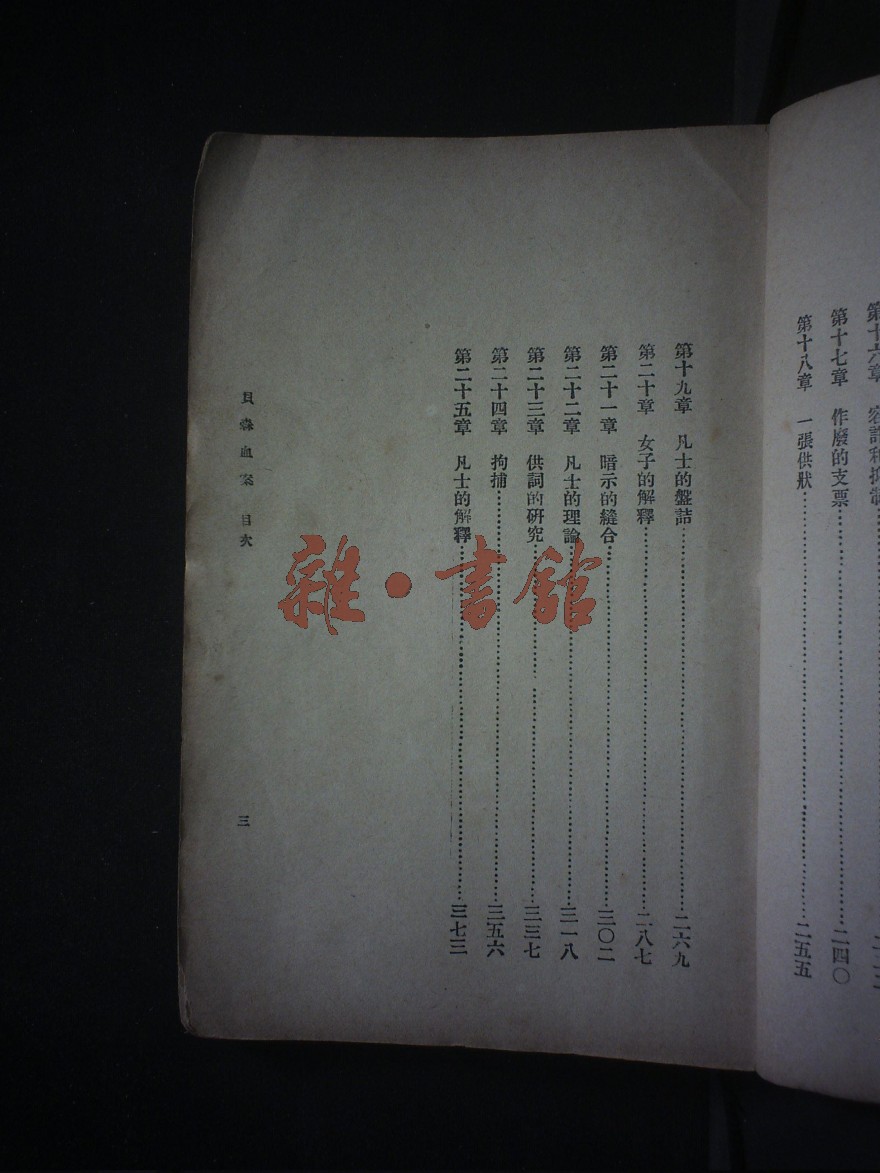 第十七章　作廢的支票……二四〇
第十八章　一張供狀……二五五
第十九章　凡士的盤詰……二六九
第二十章　女子的解釋……二八七
第二十一章　暗示的縫合……三〇二
第二十二章　凡士的理論……三一八
第二十三章　供詞的研究……三三七
第二十四章　拘捕……三五六
第二十五章　凡士的解釋……三七三
貝森血案　目次
三
雜·書館